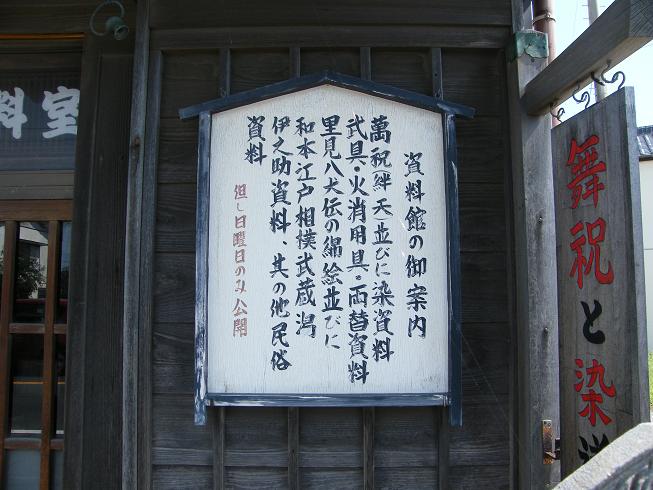 資料館の御案内
萬祝(絆天)並びに染資料
武具・火消用具・両替資料
里見八犬伝の錦絵並びに
和本江戸相撲武蔵潟
伊之助資料、其の他民俗
資料
但し日曜日のみ公開
舞祝と染
料室